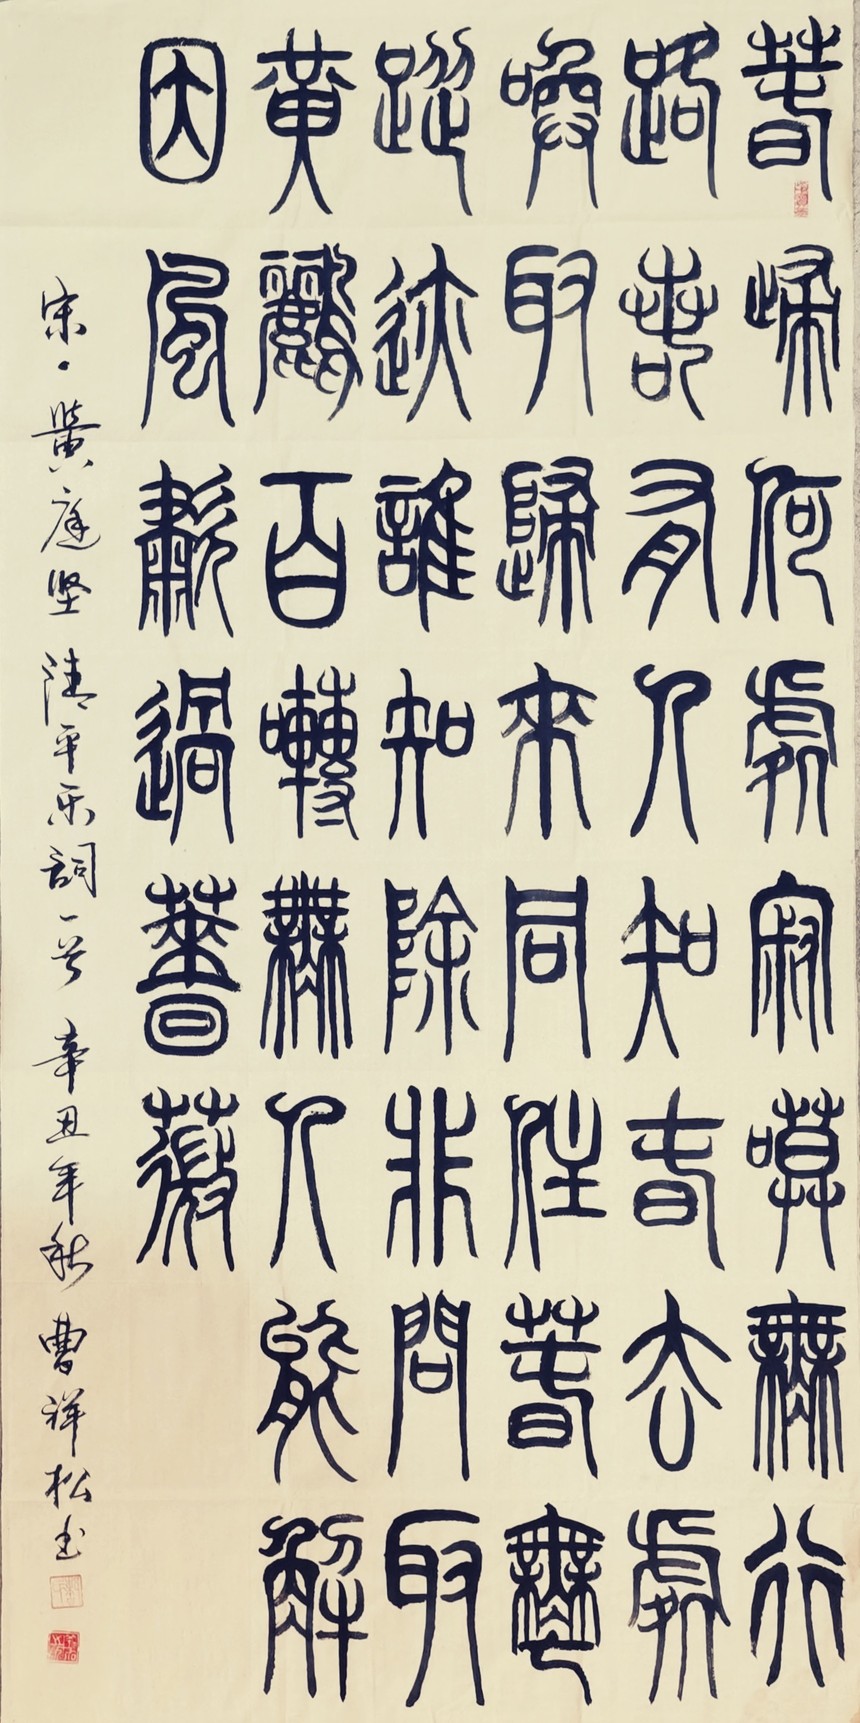 春歸何處寂寞無行
路若有人知春去處
喚取歸來同住春無
蹤迹誰知除非問取
黃鸝百囀無人能解
因風飛過薔薇
宋·黃庭坚 清平乐詞一首 辛丑年秋 曹祥松书